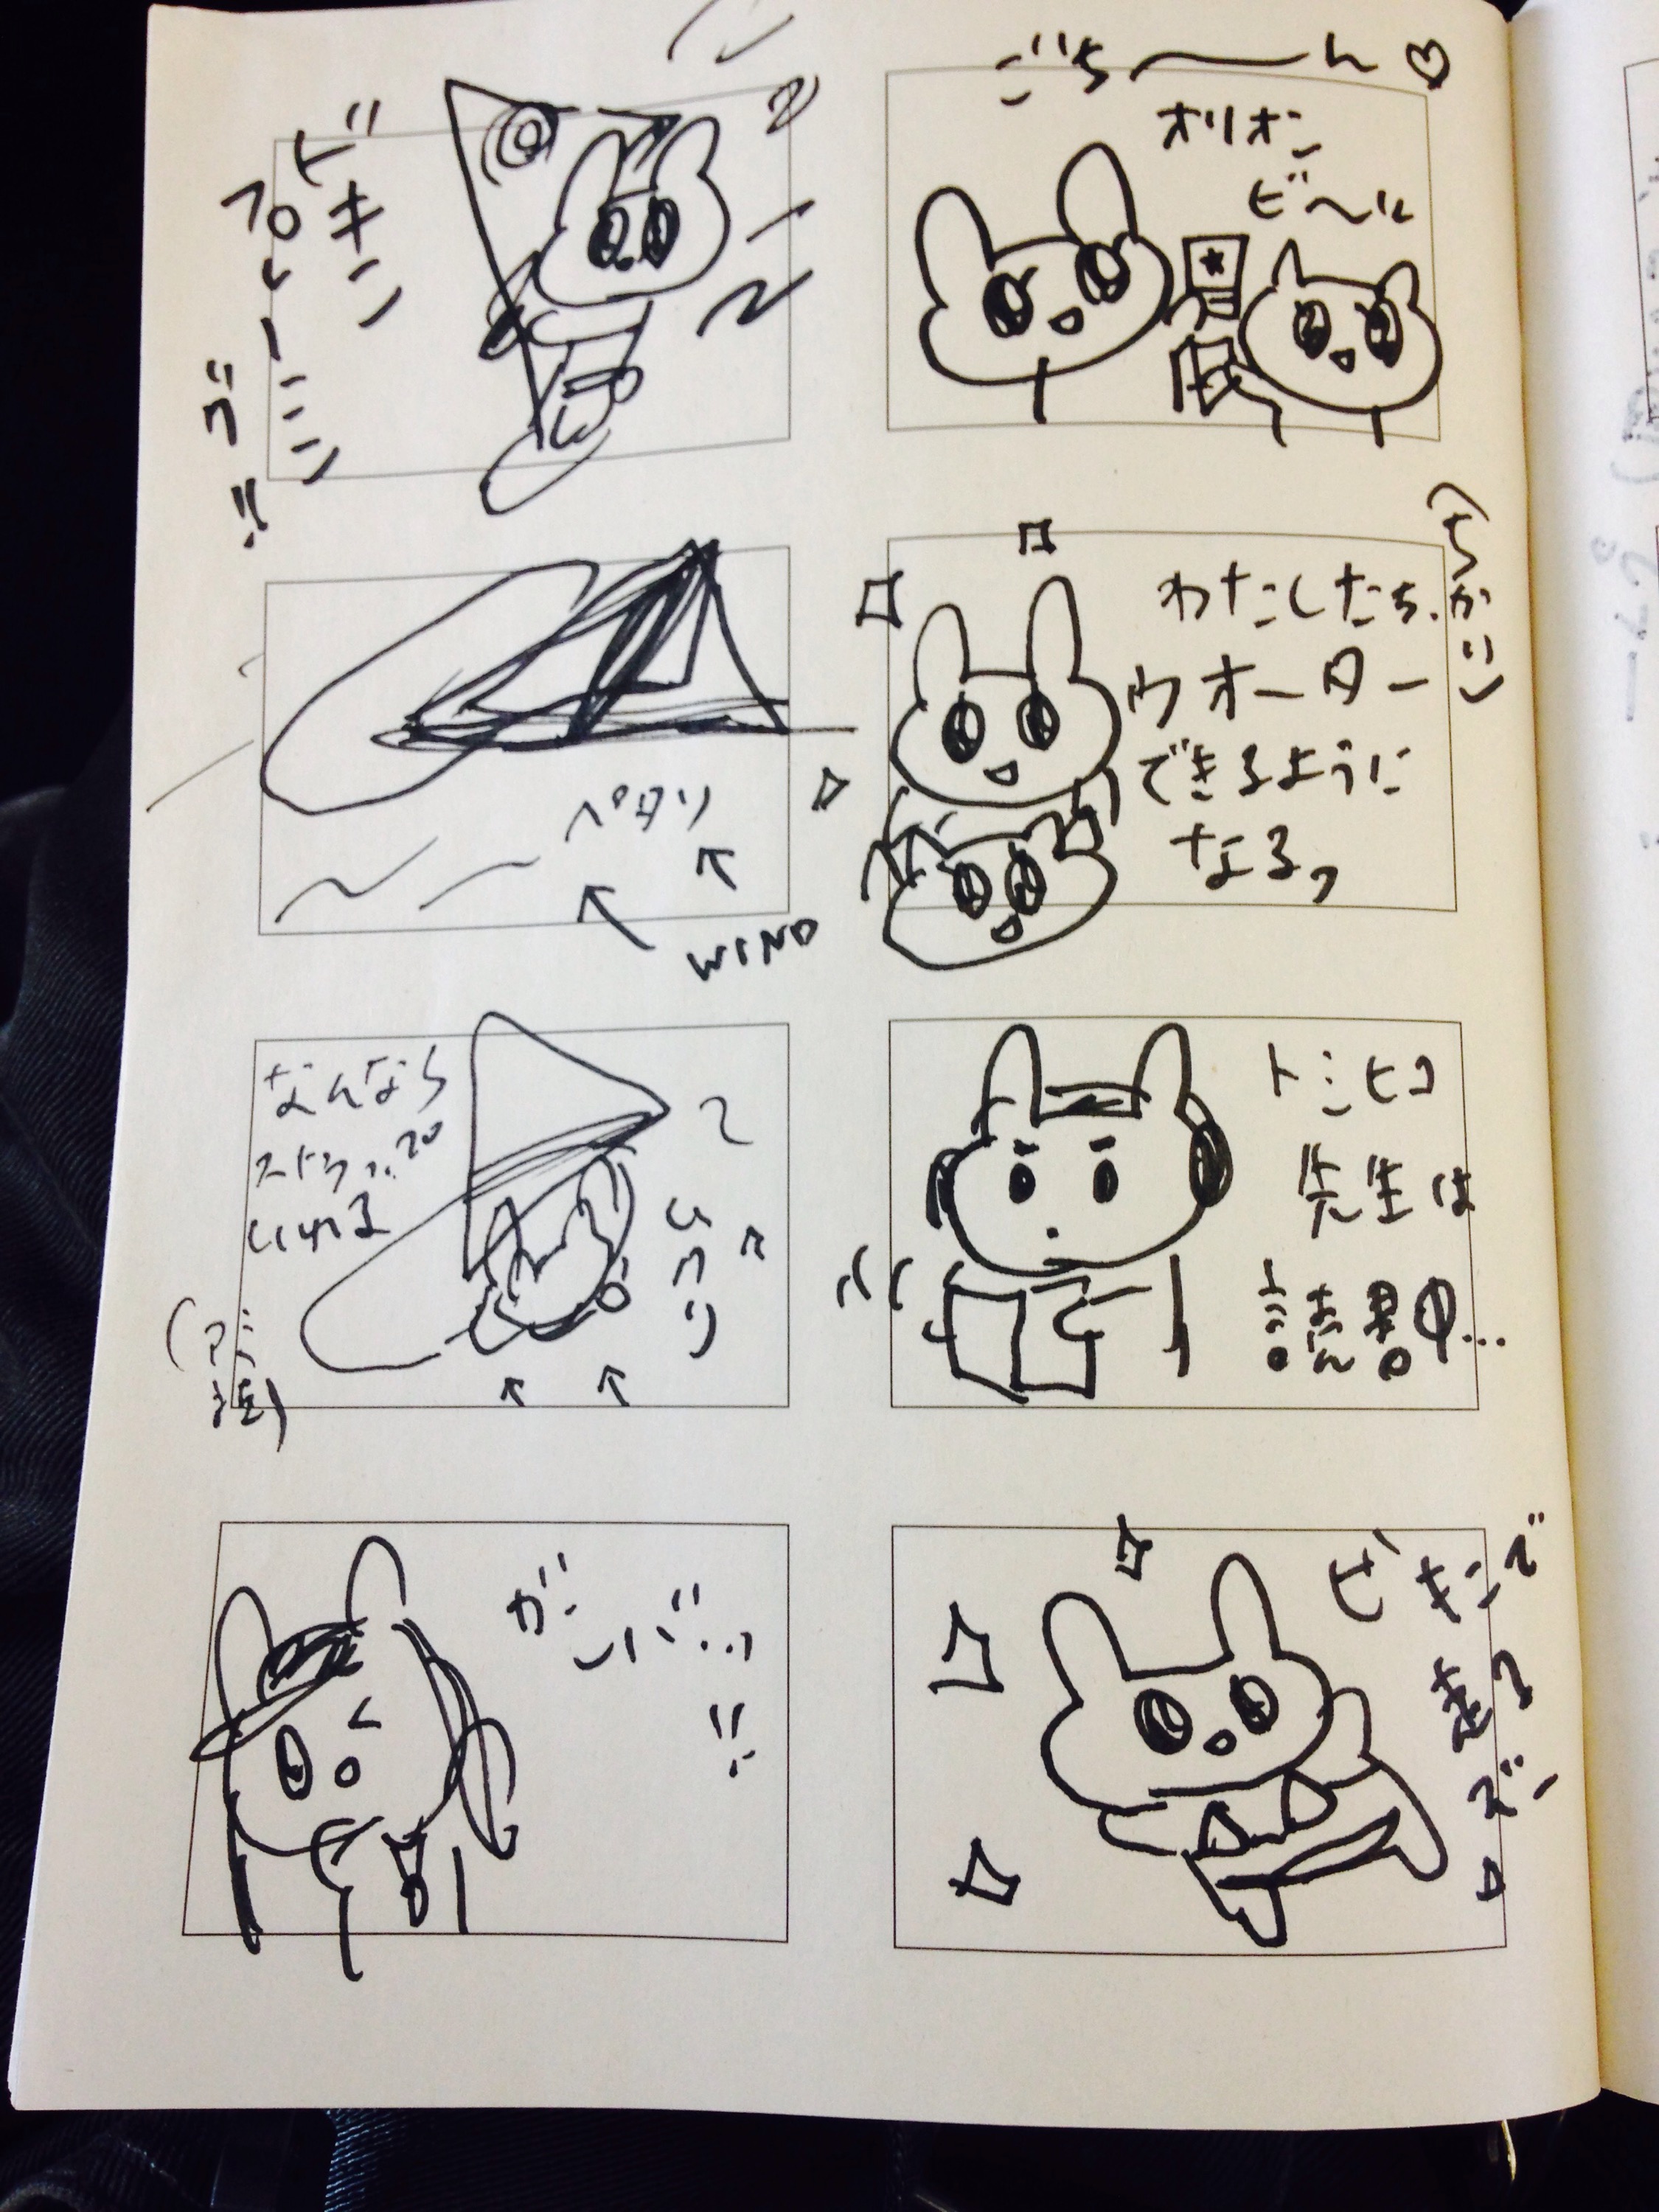 ごち〜ん♡
オリオン
ビ〜ル
わたしたち、
ウオーター
できるように
なるっ
(ちかい)
トシヒコ
先生は
読書中…
ビキンで
走るズー
ビキン
プレーニン
グ!!
ペタリ
WIND
なんなら
ストラップ
いれる
ムクリ
ガンバッ
!!